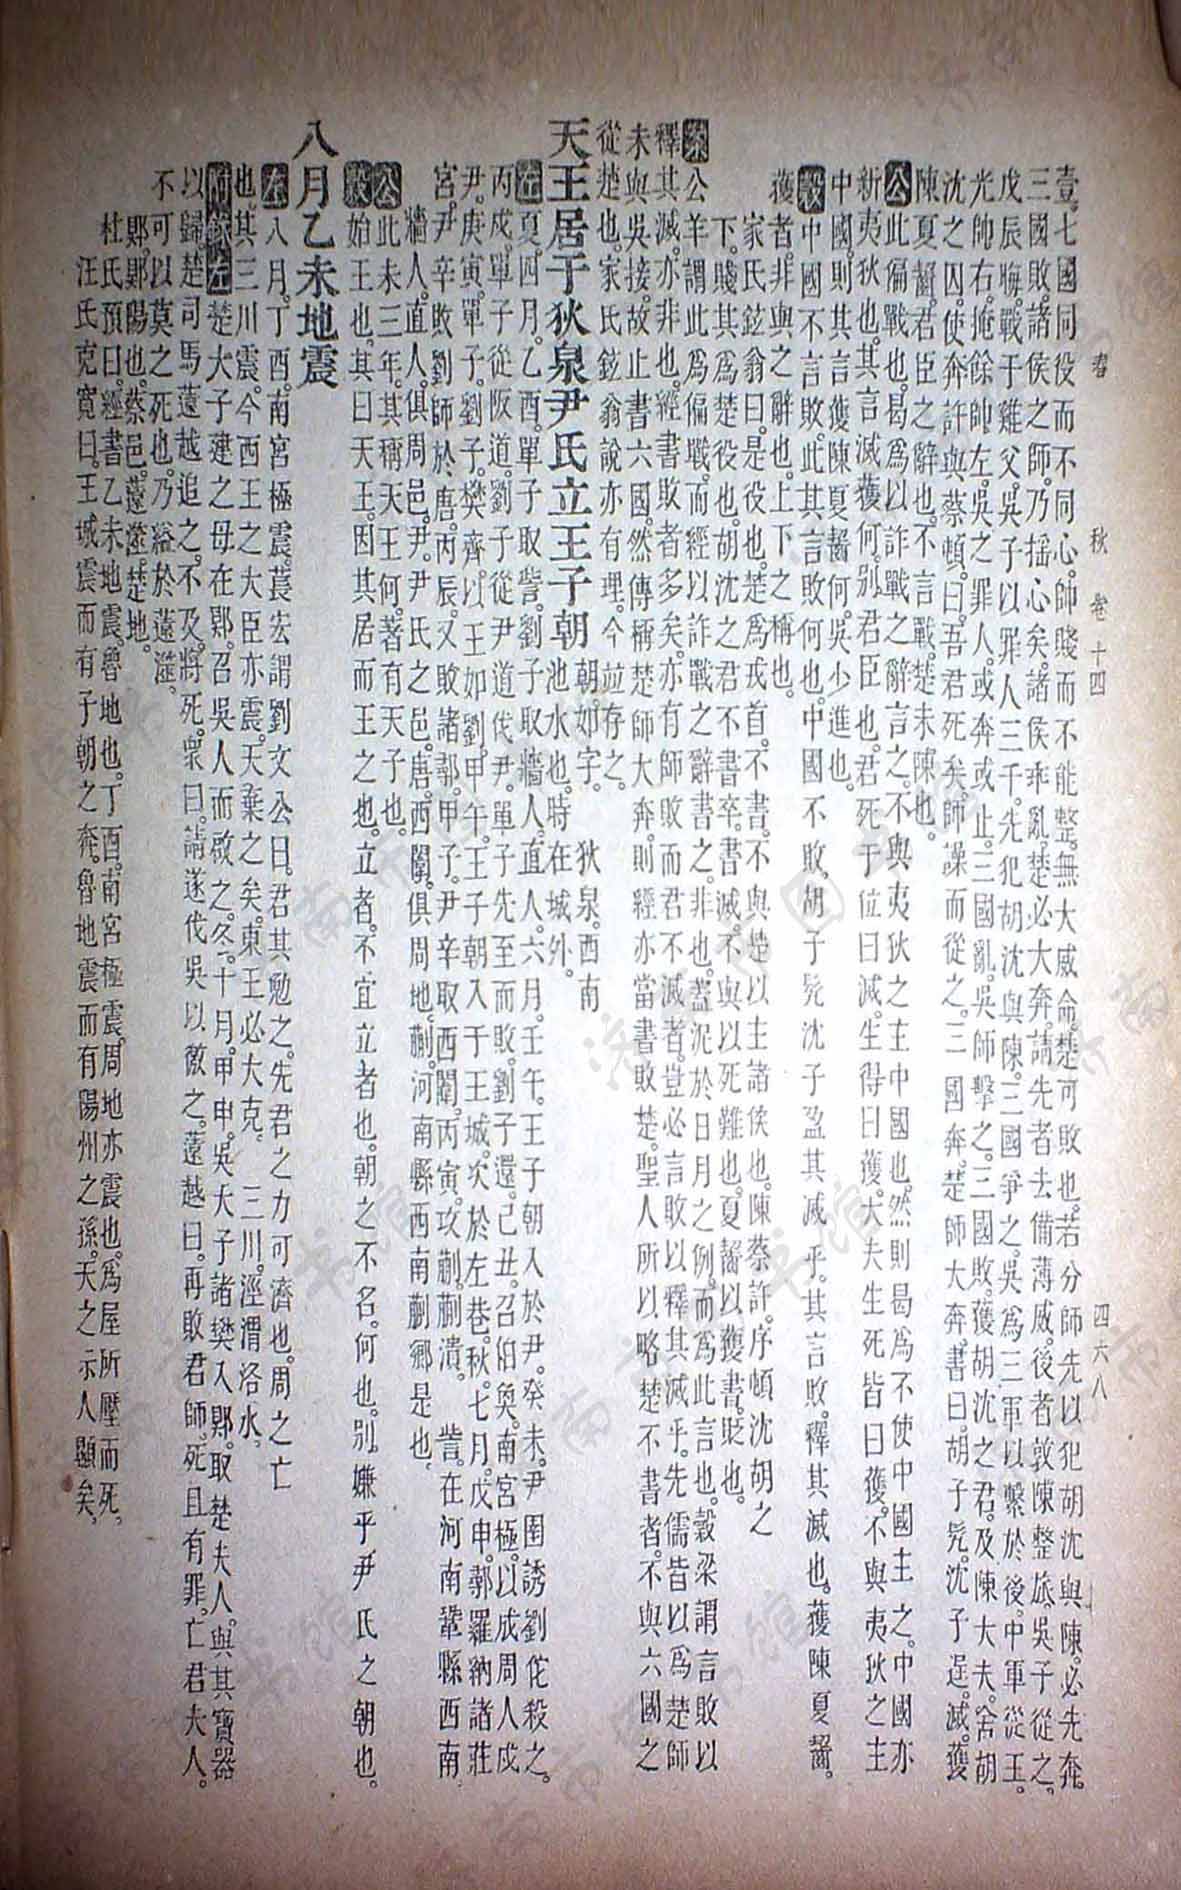 春　秋　卷十四　四六八
壹七國同役而不同心。師賤而不能整。無大威命。楚可敗也。若分師先以犯胡沈與陳。必先奔。
三國敗。諸侯之師。乃搖心矣。諸侯乖亂。楚必大奔。請先者去備薄威。後者敦陳整旅。吳子從之。
戊辰晦。戰于雞父。吳子以罪人三千。先犯胡沈與陳。三國爭之。吳爲三軍以繫於後。中軍從王。
光帥右。掩餘帥左。吳之罪人。或奔或止。三國亂。吳師擊之。三國敗。獲胡沈之君。及陳大夫。舍胡
沈之囚。使奔許與蔡頓。曰。吾君死矣。師譟而從之。三國奔。楚師大奔。書曰。胡子髡。沈子逞。滅。獲
陳夏齧。君臣之辭也。不言戰。楚未陳也。
公此偏戰也。曷爲以詐戰之辭言之。不與夷狄之主中國也。然則曷爲不使中國主之。中國亦
新夷狄也。其言滅獲何。別君臣也。君死于位曰滅。生得曰獲。大夫生死皆曰獲。不與夷狄之主
中國。則其言獲陳夏齧何。吳少進也。
穀中國不言敗。此其言敗何也。中國不敗。胡子髡沈子盈其滅乎。其言敗。釋其滅也。獲陳夏齧。
獲者。非與之辭也。上下之稱也。
家氏鉉翁曰。是役也。楚爲戎首。不書。不與楚以主諸侯也。陳蔡許。序頓沈胡之
下。賤其爲楚役也。胡沈之君不書卒。書滅。不與以死難也。夏齧以獲書。貶也。
案公羊謂此爲偏戰。而經以詐戰之辭書之。非也。蓋泥於日月之例。而爲此言也。穀梁謂言敗以
釋其滅。亦非也。經書敗者多矣。亦有師敗而君不滅者。豈必言敗以釋其滅乎。先儒皆以爲楚師
未與吳接。故止書六國。然傳稱楚師大奔。則經亦當書敗楚。聖人所以略楚不書者。不與六國之
從楚也。家氏鉉翁說亦有理。今並存之。
天王居于狄泉尹氏立王子朝　朝。如字。　狄泉。西南池水也。時在城外。
左夏。四月。乙酉。單子取訾。劉子取牆人。直人。六月。壬午。王子朝入於尹。癸未。尹圉誘劉佗殺之。
丙戌。單子從阪道。劉子從尹道伐尹。單子先至而敗。劉子還。己丑。召伯奐。南宮極。以成周人戍
尹。庚寅。單子。劉子。樊齊。以王如劉。甲午。王子朝入于王城。次於左巷。秋。七月。戊申。鄩羅納諸莊
宮。尹辛敗劉師於唐。丙辰。又敗諸鄩。甲子。尹辛取西闈。丙寅。攻蒯。蒯潰。　訾。在河南鞏縣西南。
牆人。直人。俱周邑。尹。尹氏之邑。唐。西闈。俱周地。蒯。河南縣西南蒯鄉是也。
公此未三年。其稱天王何。著有天子也。
穀始王也。其曰天王。因其居而王之也。立者。不宜立者也。朝之不名。何也。別嫌乎尹氏之朝也。
八月乙未地震
左八月。丁酉。南宮極震。萇宏謂劉文公曰。君其勉之。先君之力可濟也。周之亡
也。其三川震。今西王之大臣亦震。天棄之矣。東王必大克。　三川。涇渭洛水。
附錄左楚大子建之母在郹。召吳人而啟之。冬。十月。甲申。吳大子諸樊入郹。取楚夫人。與其寶器
以歸。楚司馬薳越追之。不及。將死。衆曰。請遂伐吳以徼之。薳越曰。再敗君師。死且有罪。亡君夫人。
不可以莫之死也。乃縊於薳澨。
郹。郹陽也。蔡邑。薳澨。楚地。
杜氏預曰。經書乙未地震。魯地也。丁酉。南宮極震。周地亦震也。爲屋所壓而死。
汪氏克寬曰。王城震而有子朝之奔。魯地震而有陽州之孫。天之示人顯矣。